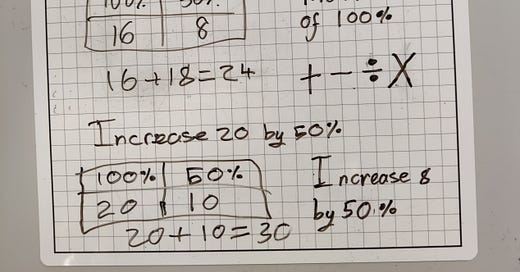 100% 50%
16 8
of 100%
16+18=24
+ - ÷ X
Increase 20 by 50%
100% 50%
20 10
20+10=30
Increase 8
by 50%